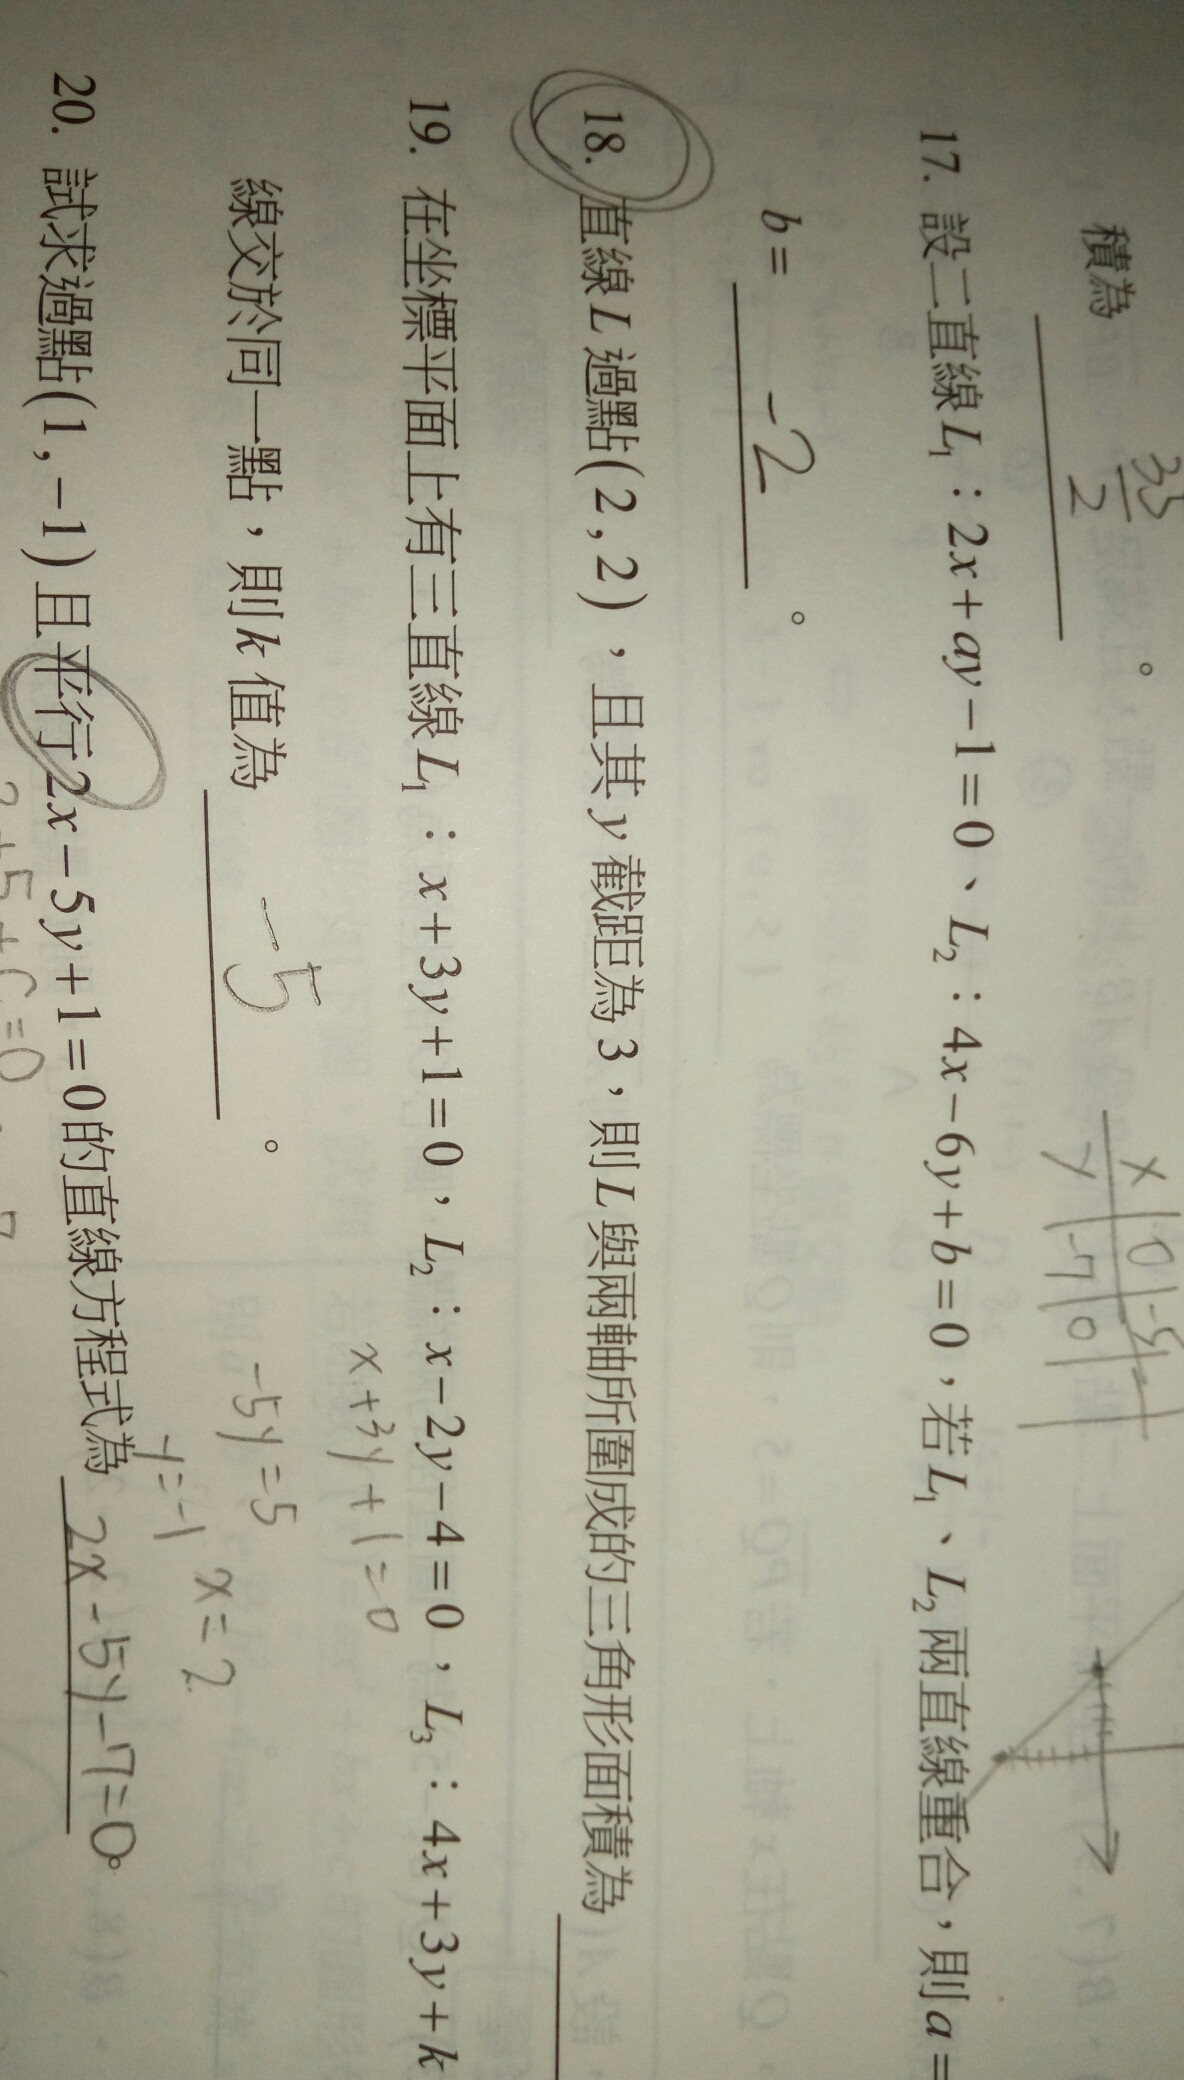 積為 35/2 。
x 0 -5
y -7 0
17. 設二直線L₁：2x+ay-1=0、L₂：4x-6y+b=0，若L₁、L₂兩直線重合，則a=
b= -2 。
18. 直線L過點(2,2)，且其y截距為3，則L與兩軸所圍成的三角形面積為
19. 在坐標平面上有三直線L₁：x+3y+1=0，L₂：x-2y-4=0，L₃：4x+3y+k
線交於同一點，則k值為 -5 。
x+3y+1=0
-5y=5
y=-1 x=2
20. 試求過點(1,-1)且平行2x-5y+1=0的直線方程式為 2x-5y-7=0。
2+5+c=0